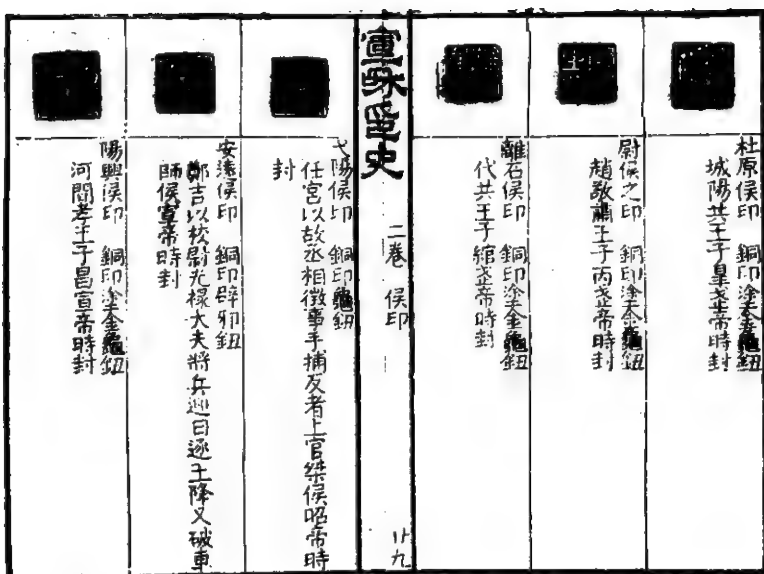 杜原侯印　銅印塗金龜鈕
城陽共王子皐武帝時封
尉侯之印　銅印塗金龜鈕
趙敬肅王子丙武帝時封
離石侯印　銅印塗金龜鈕
代共王子綰武帝時封
宣和印史
二卷　侯印
廿九
弋陽侯印　銅印龜鈕
任宮以故丞相徵事手捕反者上官桀侯昭帝時
封
安遠侯印　銅印辟邪鈕
鄭吉以校尉光祿大夫將兵迎日逐王降又破車
師侯宣帝時封
陽興侯印　銅印塗金龜鈕
河間孝王子昌宣帝時封